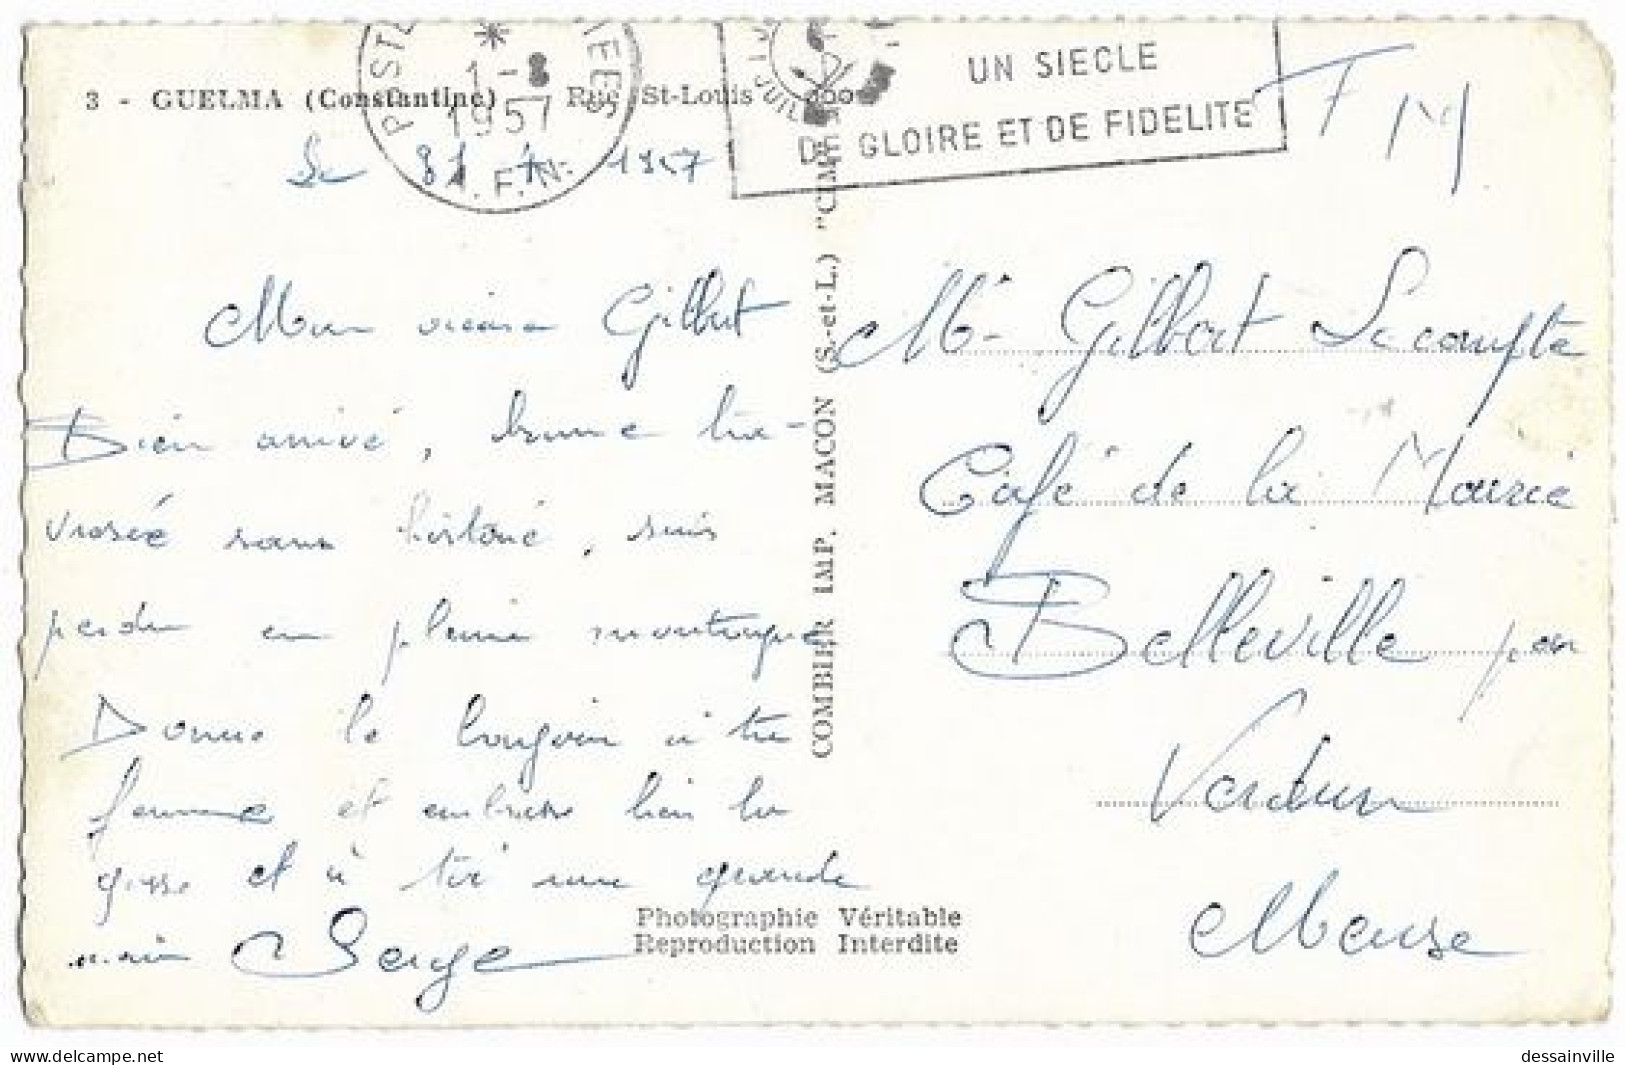 3 - GUELMA (Constantine) - Rue St-Louis
POSTE ... MEES
*
1-8
1957
A.F.N.
UN SIECLE
DE GLOIRE ET DE FIDELITE
F M
Le 31 7 1957
Mon vieux Gilbert
Bien arrivé, bonne tra-
versée sans histoire, suis
perdu en pleine montagne
Donne le bonjour à ta
femme et embrasse bien la
gosse et à toi une grande
main Serge
COMBIER IMP. MACON (S.-et-L.) "CIM"
Mr Gilbert Lecompte
Café de la Mairie
Belleville par
Verdun
Meuse
Photographie Véritable
Reproduction Interdite
delcampe.net
dessainville